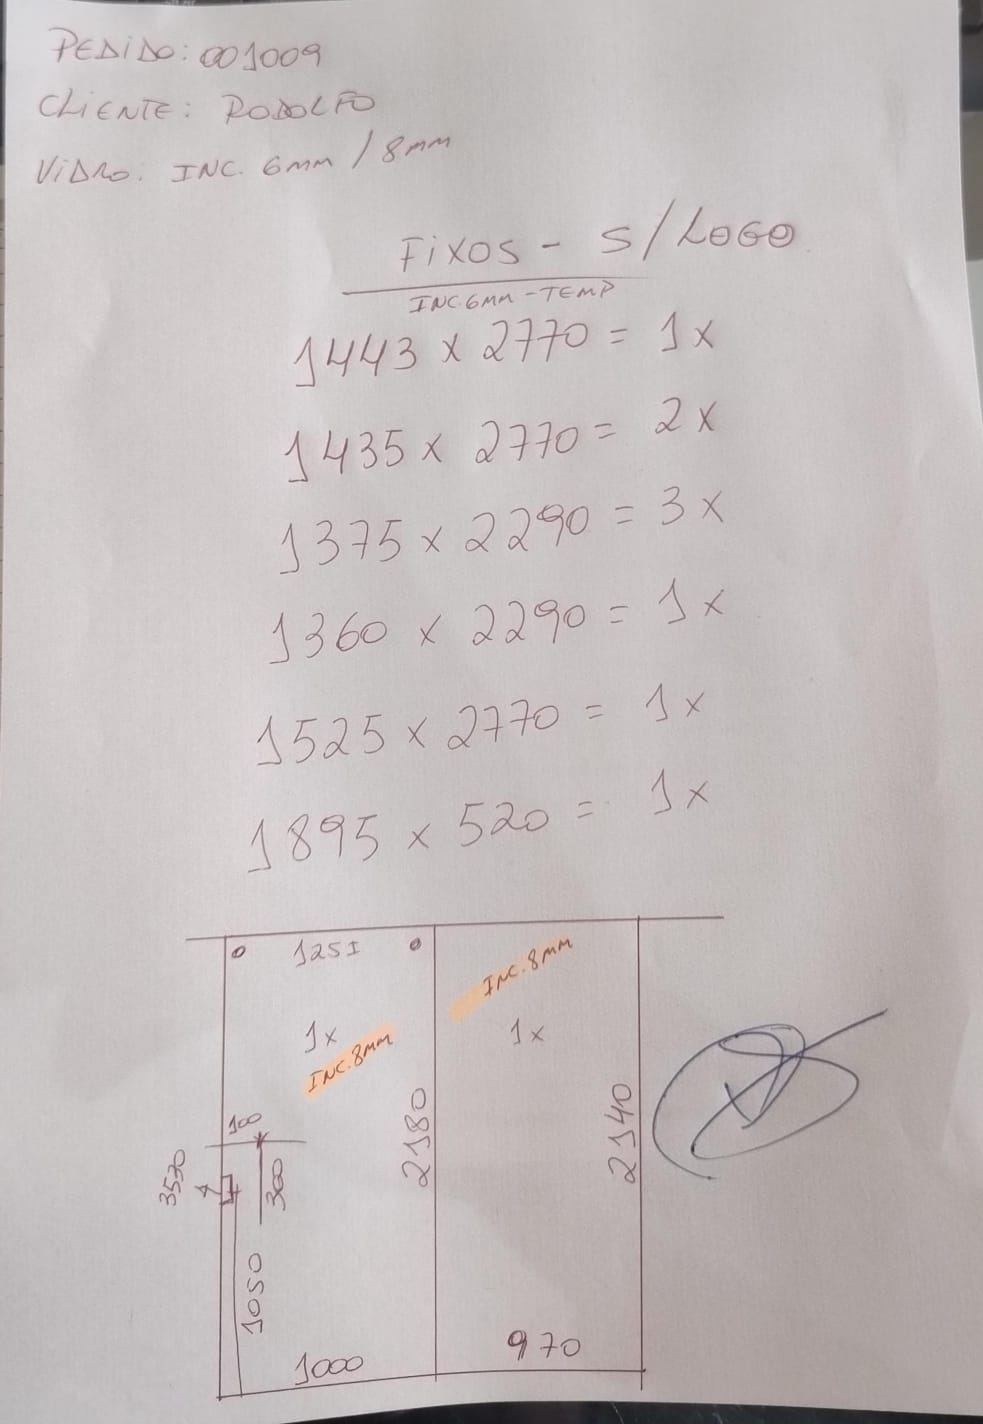 PEDIDO: 001009
CLIENTE: RODOLFO
VIDRO: INC. 6MM / 8MM
FIXOS - S/LOGO
INC.6MM-TEMP
1443 x 2770 = 1x
1435 x 2770 = 2x
1375 x 2290 = 3x
1360 x 2290 = 1x
1525 x 2770 = 1x
1895 x 520 = 1x
1x
INC.8MM
INC.8MM
1x
100
300
2180
2140
1050
1000
970